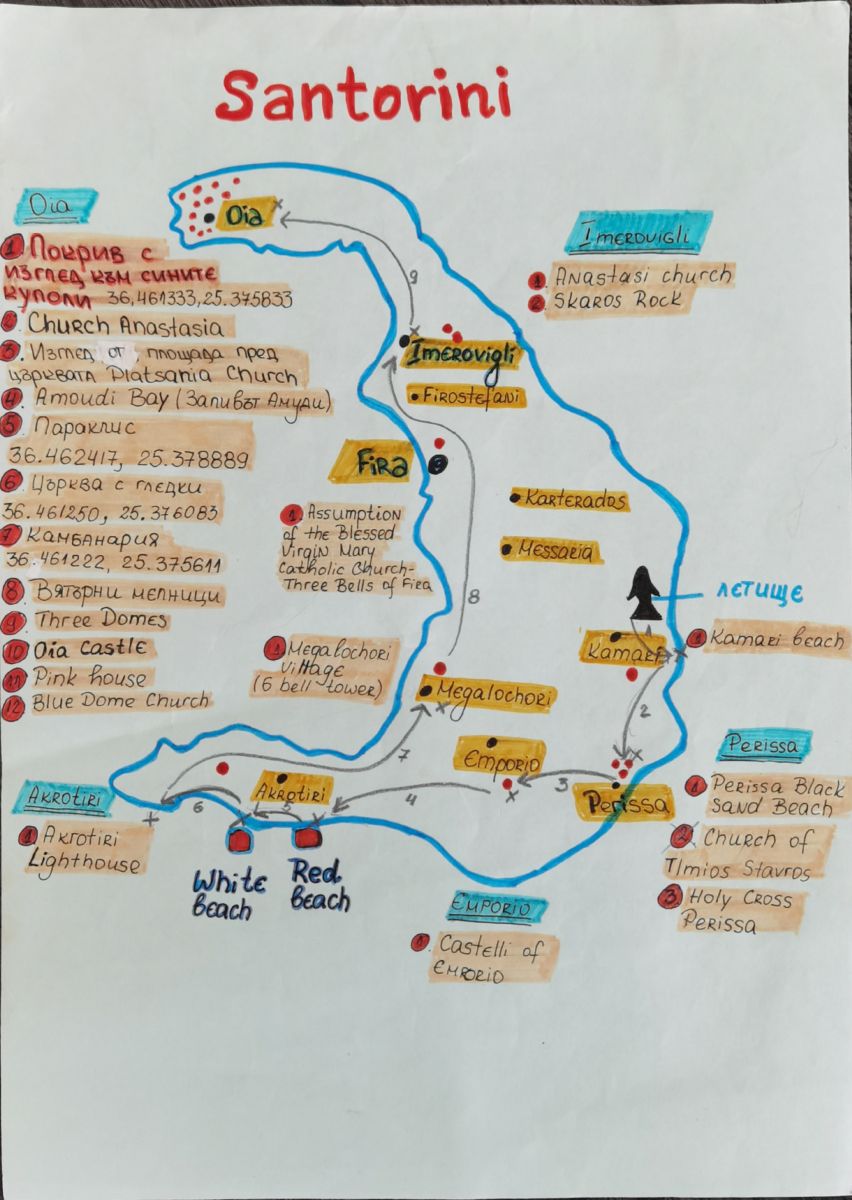 Santorini
Oia
1. Покрив с
изглед към сините
куполи 36,461333,25.375833
2. Church Anastasia
3. Изглед от площада пред
църквата Platsania Church
4 Amoudi Bay (Заливът Амуди)
5 Параклис
36.462417, 25.378889
6. Църква с гледки
36.461250, 25.376083
7 Камбанария
36.461222, 25.375611
8 Вятърни мелници
9 Three Domes
10 Oia castle
11 Pink house
12 Blue Dome Church
Oia
9
Imerovigli
1. Anastasi church
2. Skaros Rock
Imerovigli
Firostefani
Fira
Karterados
Messaria
1. Assumption
of the Blessed
Virgin Mary
Catholic Church-
Three Bells of Fira
8
летище
1
Kamari
1 Kamari beach
2
1 Megalochori
village
(6 bell tower)
Megalochori
7
Emporio
3
Perissa
4
Akrotiri
5
6
Perissa
1 Perissa Black
Sand Beach
2. Church of
Timios Stavros
3 Holy Cross
Perissa
Akrotiri
1 Akrotiri
Lighthouse
White
Beach
Red
Beach
Emporio
1. Castelli of
Emporio